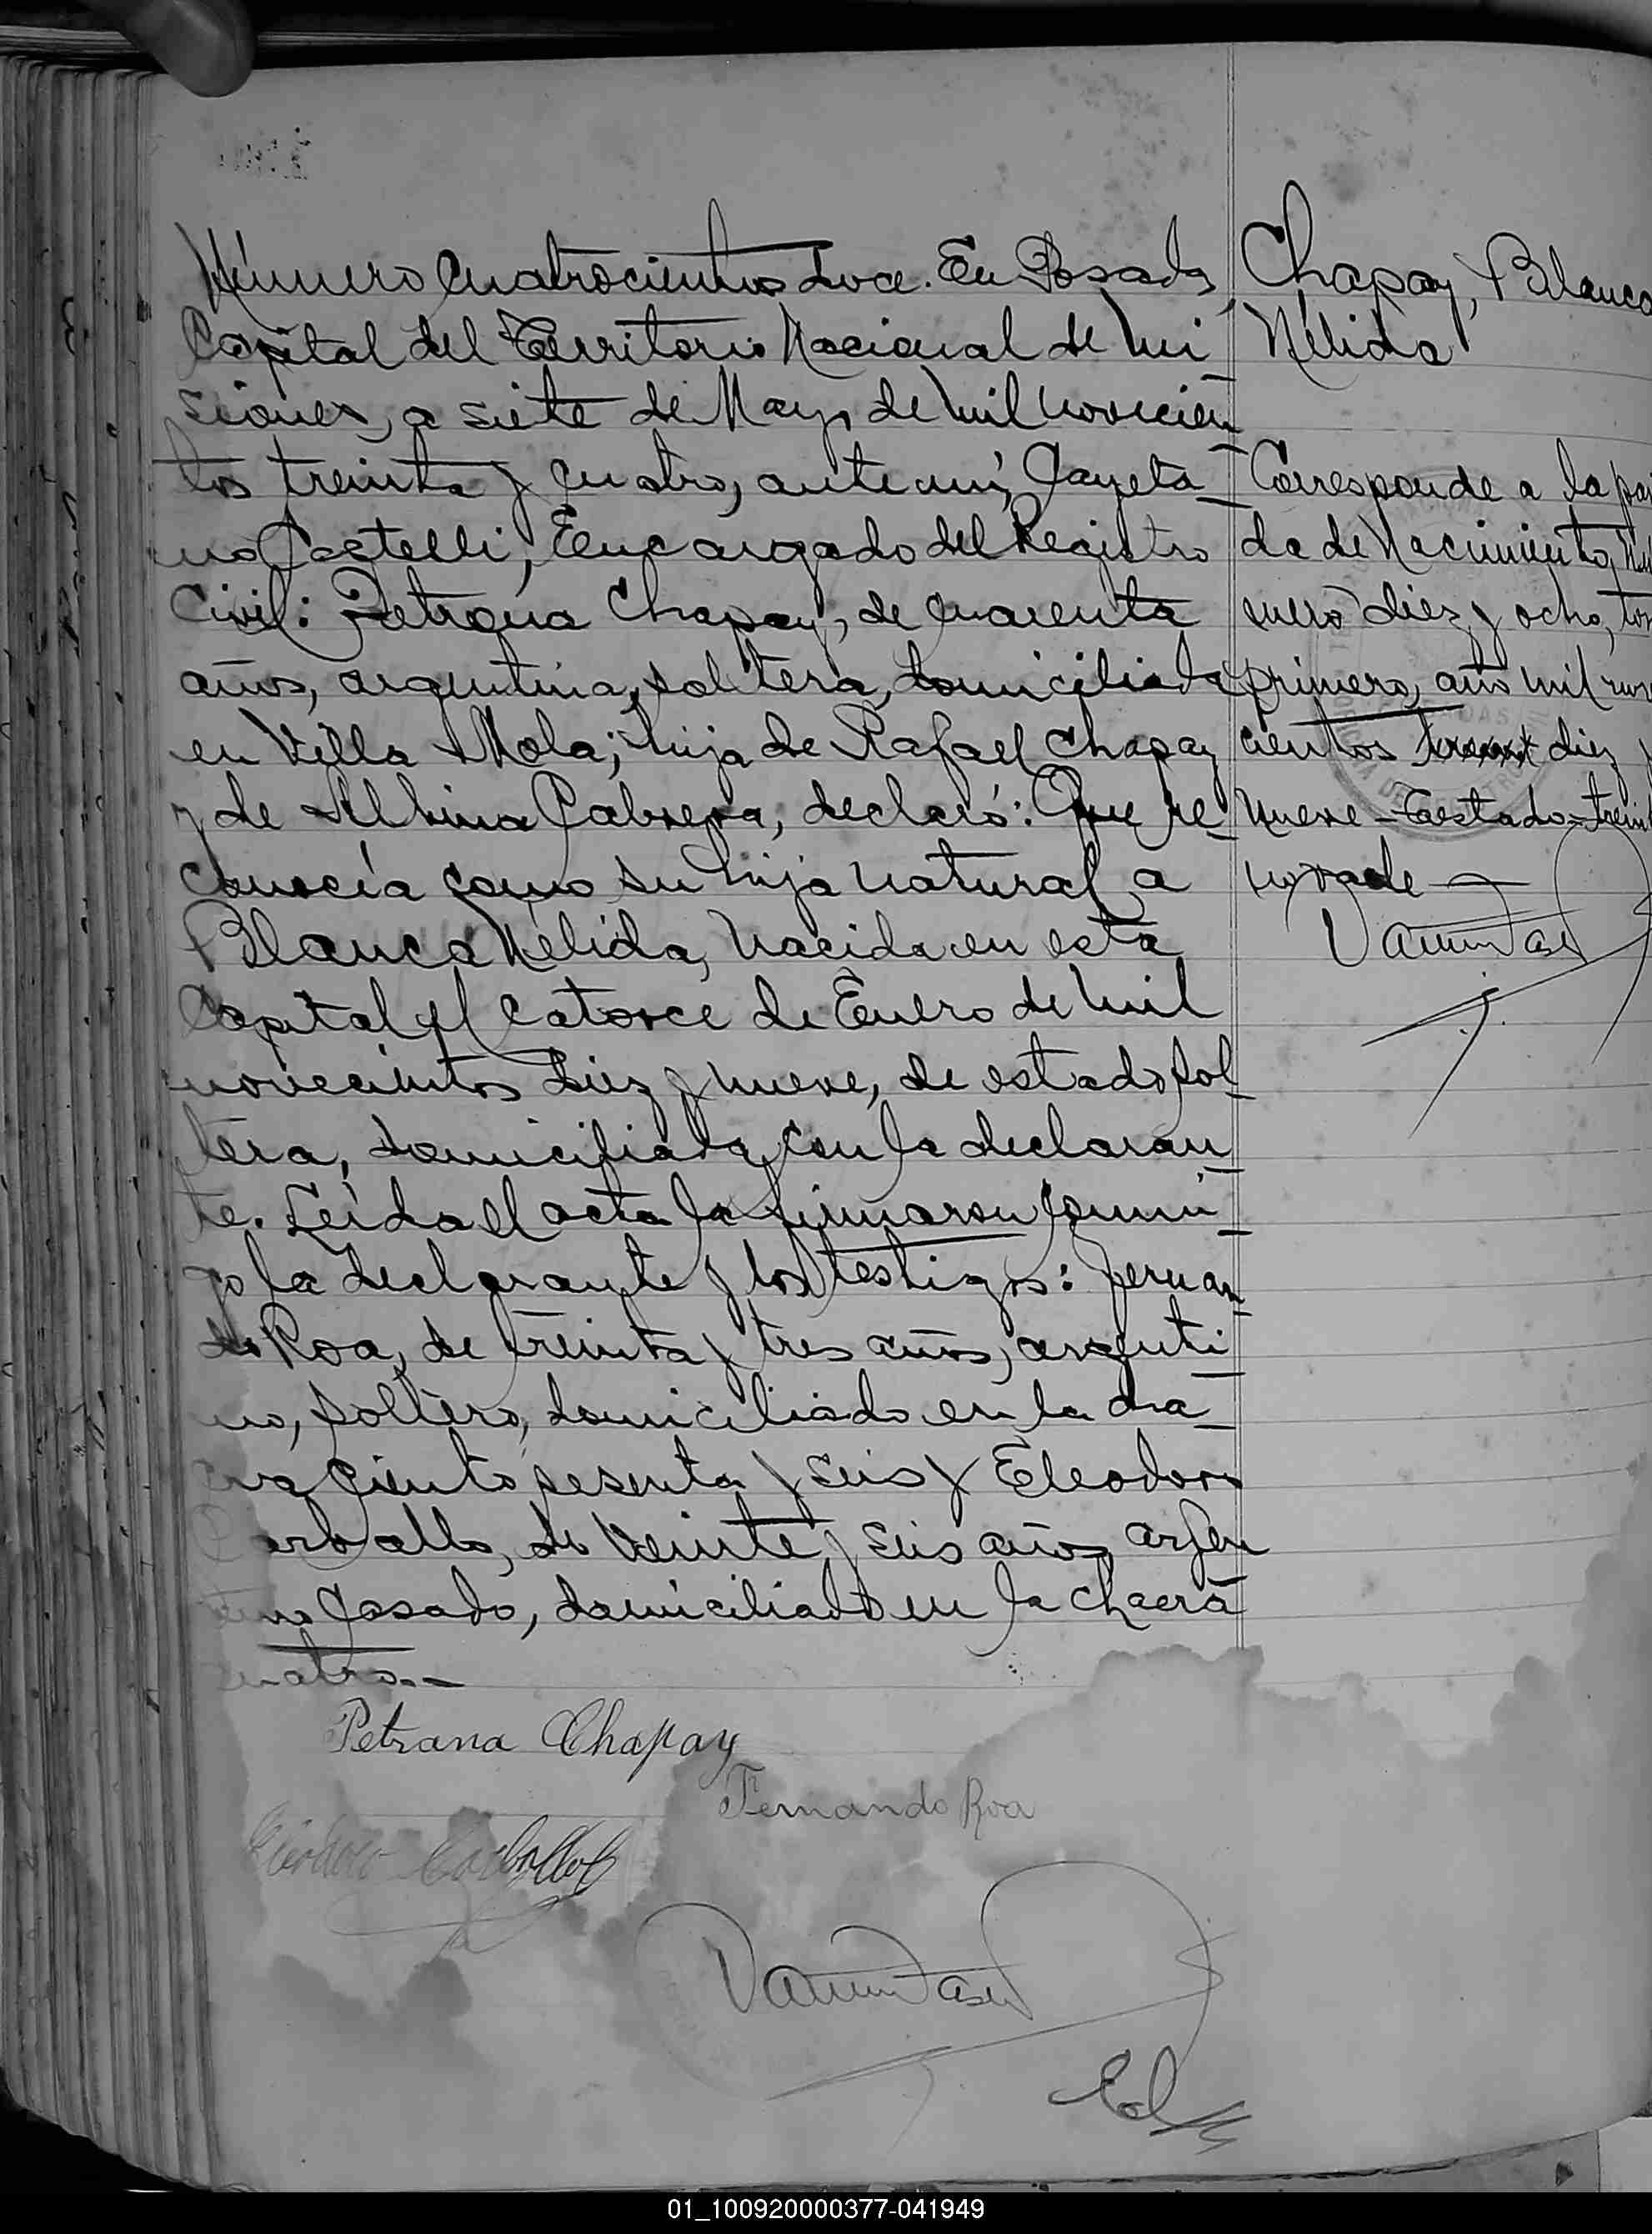 Número Cuatrocientos doce. En Posadas,
Capital del Territorio Nacional de Mi
siones, a siete de Mayo de mil novecien
tos treinta y cuatro, ante mí, Cayeta
no Castelli, Encargado del Registro
Civil: Petrona Chapay, de cuarenta
años, argentina, soltera, domiciliada
en Villa Mola; hija de Rafael Chapay
y de Albina Cabrera, declaró: Que re
conocía como su hija natural a
Blanca Nélida, nacida en esta
Capital el catorce de Enero de mil
novecientos diez y nueve, de estado sol
tera, domiciliada con la declaran
te. Leída el acta la firmaron conmi
go la declarante y los testigos: Fernan
do Roa, de treinta y tres años, argenti
no, soltero, domiciliado en la cha
cra ciento sesenta y seis y Eleodoro
Carballo, de veinte y seis años, argen
tino casado, domiciliado en la chacra
cuatro.-
Petrana Chapay
Fernando Roa
Eleodoro Carballo
Chapay, Blanca
Nélida
Corresponde a la par
da de Nacimiento, Nú
mero diez y ocho, tom
primero, año mil nove
cientos diez y
nueve - Testado = treint
no vale -
01_100920000377-041949